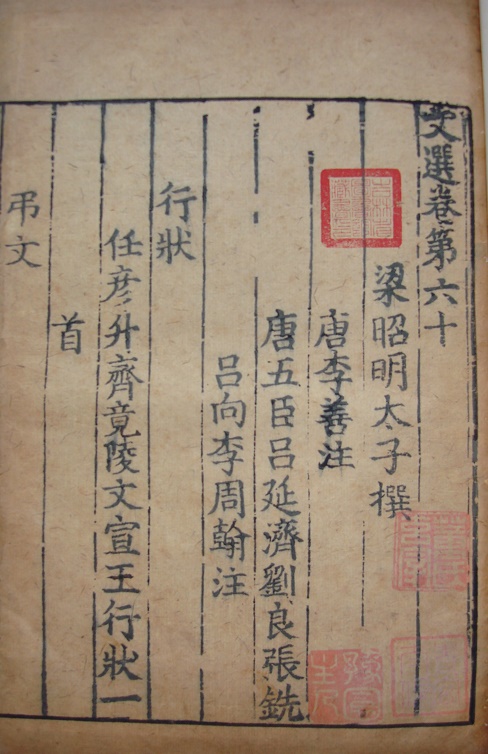 文選卷第六十
梁昭明太子撰
唐李善注
唐五臣呂延濟劉良張銑
呂向李周翰注
行狀
任彥升齊竟陵文宣王行狀一
首
弔文